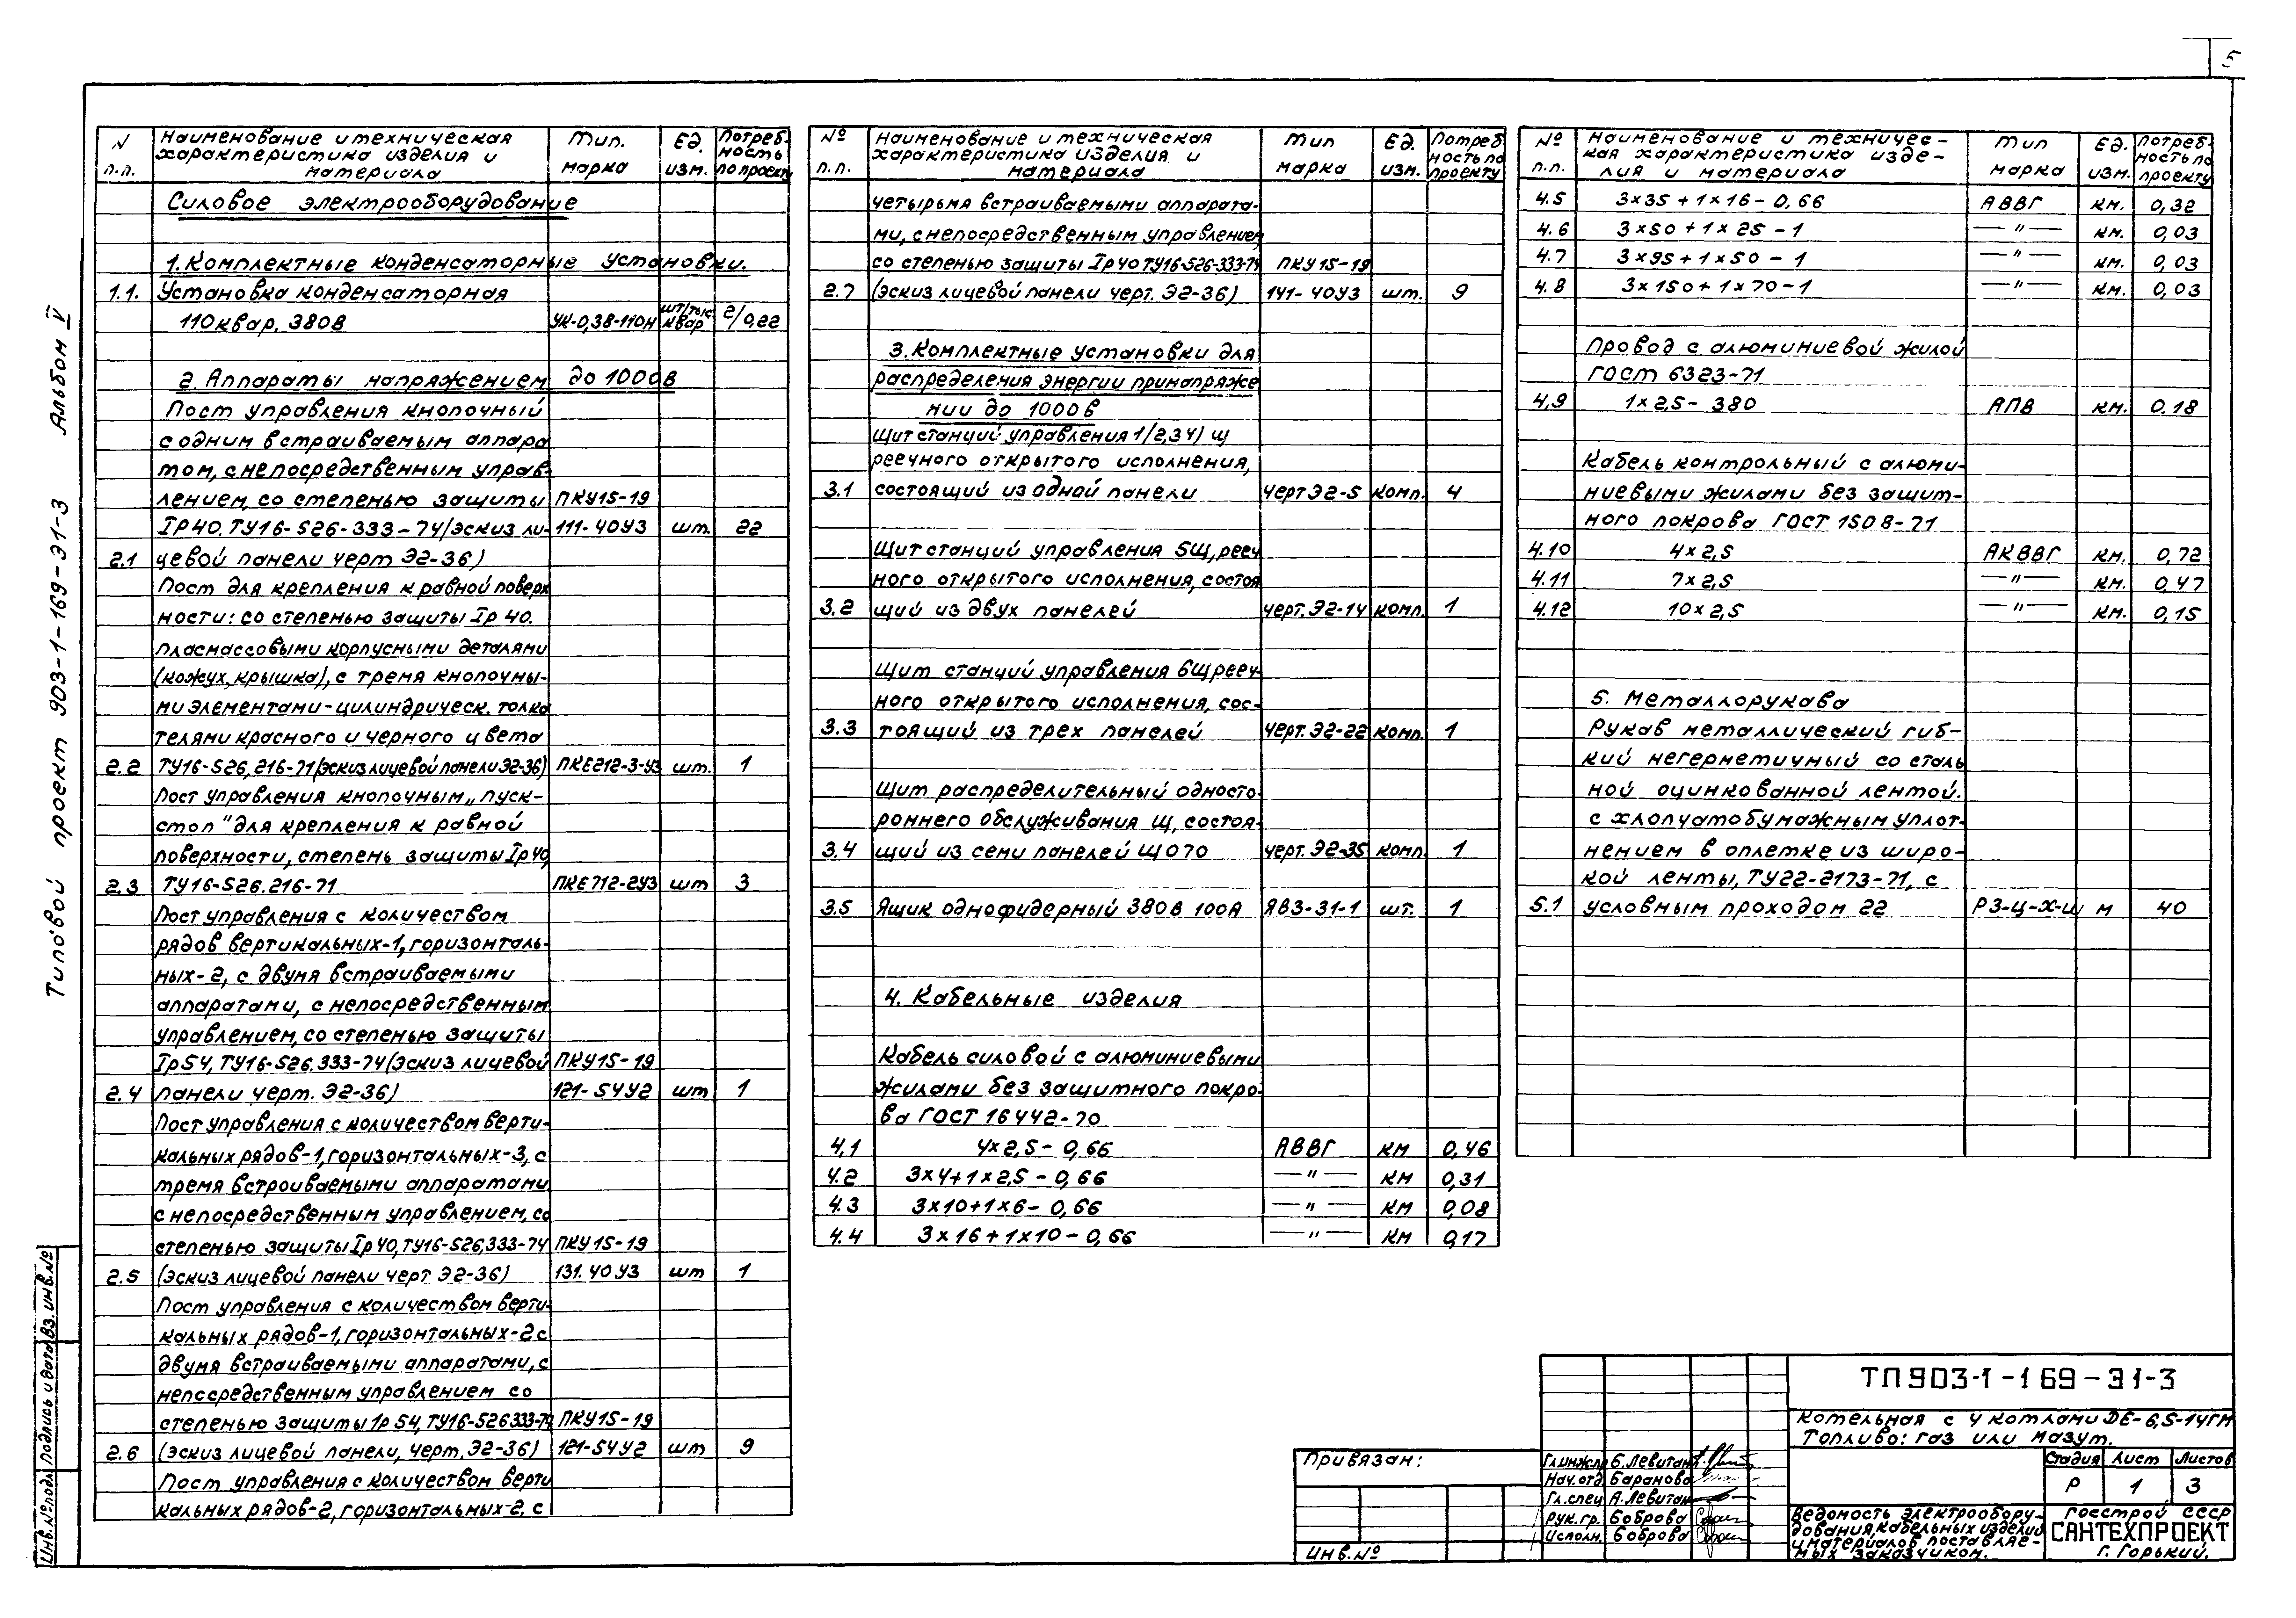 5
Типовой проект 903-1-169-Э1-3 Альбом V
N п.п. | Наименование и техническая характеристика изделия и материала | Тип. марка | Ед. изм. | Потреб-ность по проекту
Силовое электрооборудование
1. Комплектные конденсаторные установки.
1.1. Установка конденсаторная
110 квар, 380в | УК-0,38-110Н | шт/тыс. квар | 2/0,22
2. Аппараты напряжением до 1000в
Пост управления кнопочный
с одним встраиваемым аппара
том, с непосредственным управ-
лением, со степенью защиты | ПКУ15-19
IP40. ТУ16-526-333-74/эскиз ли- | 111-40У3 | шт. | 22
2.1 цевой панели черт Э2-36)
Пост для крепления к равной поверх
ности: со степенью защиты Iр 40.
пласмассовыми корпусными деталями
(кожух, крышка), с тремя кнопочны-
ми элементами-цилиндрическ. толка
телями красного и черного цвета
2.2 ТУ16-526, 216-71(эскиз лицевой панели Э2-36) | ПКЕ212-3-У3 | шт. | 1
Пост управления кнопочным „пуск-
стоп" для крепления к равной
поверхности, степень защиты Iр 40,
2.3 ТУ16-526.216-71 | ПКЕ712-2У3 | шт | 3
Пост управления с количеством
рядов вертикальных-1, горизонталь-
ных-2, с двумя встраиваемыми
аппаратами, с непосредственным
управлением, со степенью защиты
Iр54, ТУ16-526.333-74(эскиз лицевой | ПКУ15-19
2.4 панели черт. Э2-36) | 121-54У2 | шт | 1
Пост управления с количеством верти-
кальных рядов-1, горизонтальных-3, с
тремя встроиваемыми аппаратами
с непосредственным управлением, со
степенью защиты Iр40, ТУ16-526,333-74 | ПКУ15-19
2.5 (эскиз лицевой панели черт Э2-36) | 131.40У3 | шт | 1
Пост управления с количеством верти-
кальных рядов-1, горизонтальных-2 с
двумя встраиваемыми аппаратами, с
непосредственным управлением со
степенью защиты Iр 54, ТУ16-526 333-74 | ПКУ15-19
2.6 (эскиз лицевой панели, черт. Э2-36) | 121-54У2 | шт | 9
Пост управления с количеством верти
кальных рядов-2, горизонтальных-2, с
№ п.п. | Наименование и техническая характеристика изделия и материала | Тип марка | Ед. изм. | Потреб ность по проекту
четырьмя встраиваемыми аппарата-
ми, с непосредственным управлением,
со степенью защиты Iр40 ТУ16-526-333-74 | ПКУ15-19
2.7 (эскиз лицевой панели черт. Э2-36) | 141-40У3 | шт. | 9
3. Комплектные установки для
распределения энергии при напряже
нии до 1000в
Щит станций управления 1/2,3,4) щ
реечного открытого исполнения,
3.1 состоящий из одной панели | черт Э2-5 | комп. | 4
Щит станций управления 5Щ, рееч
ного открытого исполнения, состоя
3.2 щий из двух панелей | черт. Э2-14 | комп. | 1
Щит станций управления 6Щ рееч-
ного открытого исполнения, сос-
3.3 тоящий из трех панелей | черт. Э2-22 | комп. | 1
Щит распределительный односто-
роннего обслуживания Щ, состоя-
3.4 щий из семи панелей ЩО70 | черт. Э2-35 | комп. | 1
3.5 Ящик однофидерный 380в 100А | ЯВЗ-31-1 | шт. | 1
4. Кабельные изделия
Кабель силовой с алюминиевыми
жилами без защитного покро-
ва ГОСТ 16442-70
4,1 4х2,5-0,66 | АВВГ | км | 0,46
4.2 3х4+1х2,5-0,66 | —"— | км | 0,31
4.3 3х10+1х6-0,66 | —"— | км | 0,08
4.4 3х16+1х10-0,66 | —"— | км | 0,17
№ п.п. | Наименование и техничес-кая характеристика изде-лия и материала | Тип марка | Ед. изм. | Потреб-ность по проекту
4.5 3х35+1х16-0,66 | АВВГ | км. | 0,32
4.6 3х50+1х25-1 | —"— | км. | 0,03
4.7 3х95+1х50-1 | —"— | км. | 0,03
4.8 3х150+1х70-1 | —"— | км. | 0,03
Провод с алюминиевой жилой
ГОСТ 6323-71
4,9 1х2,5-380 | АПВ | км. | 0.18
Кабель контрольный с алюми-
ниевыми жилами без защит-
ного покрова ГОСТ 1508-71
4.10 4х2,5 | АКВВГ | км. | 0,72
4.11 7х2,5 | —"— | км. | 0,47
4.12 10х2,5 | —"— | км. | 0,15
5. Металлорукава
Рукав металлический гиб-
кий негерметичный со сталь
ной оцинкованной лентой.
с хлопчатобумажным уплот-
нением в оплетке из широ-
кой ленты, ТУ22-2173-71, с
5.1 условным проходом 22 | РЗ-Ц-Х-Ш | м | 40
Инв.№ подл. Подпись и дата Вз. инв.№
Привязан:
Инв.№
Гл.инж.пр Б.Левитан
Нач.отд Баранова
Гл.спец А.Левитан
Рук.гр. Боброва
Исполн. Боброва
ТП903-1-169-Э1-3
Котельная с 4 котлами ДЕ-6,5-14ГМ
Топливо: газ или мазут.
Стадия Лист Листов
Р 1 3
Ведомость электрообору-
дования, кабельных изделий
и материалов поставляе-
мых заказчиком.
Госстрой СССР
САНТЕХПРОЕКТ
г. Горький.